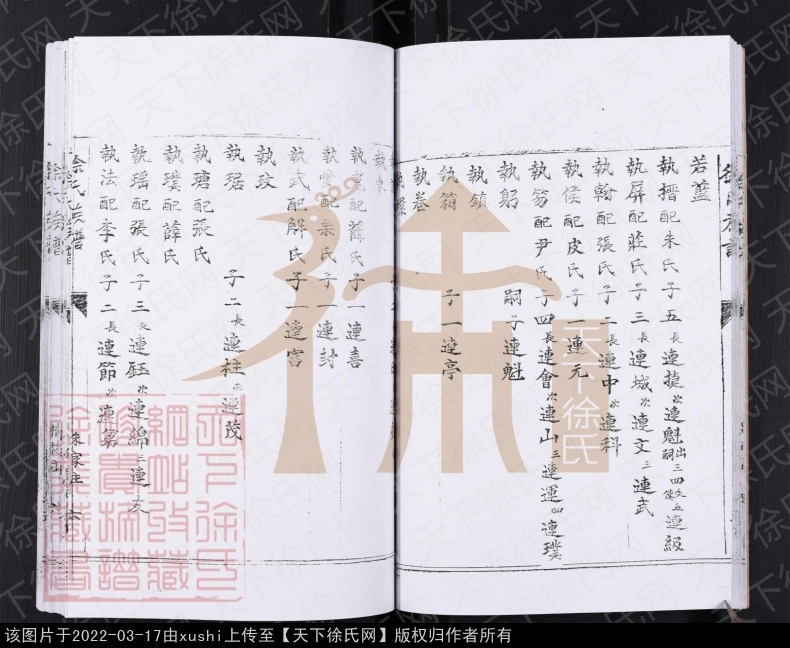 若
執搢配朱氏子五長連捷次連魁出嗣三四五連級
執屏配莊氏子三長連城次連文三連武
執翰配張氏子二長連中次連科
執侯配皮氏子一連元
執笏配尹氏子四長連會次連山三連運四連璞
執躬 嗣子連魁
執鎮
執 子一連亭
執卷
執配薛氏子一連喜
執配栗氏子一連封
執武配解氏子一連富
執玟
執琚 子二長連柱次連茂
執瑭配張氏
執璞配薛氏
執瑶配張氏子三長連鈺次連綿三連太
執法配李氏子二長連節次連第
徐氏族譜
朱家庄
天下徐氏
天下徐氏网
该图片于2022-03-17由xushi上传至【天下徐氏网】版权归作者所有